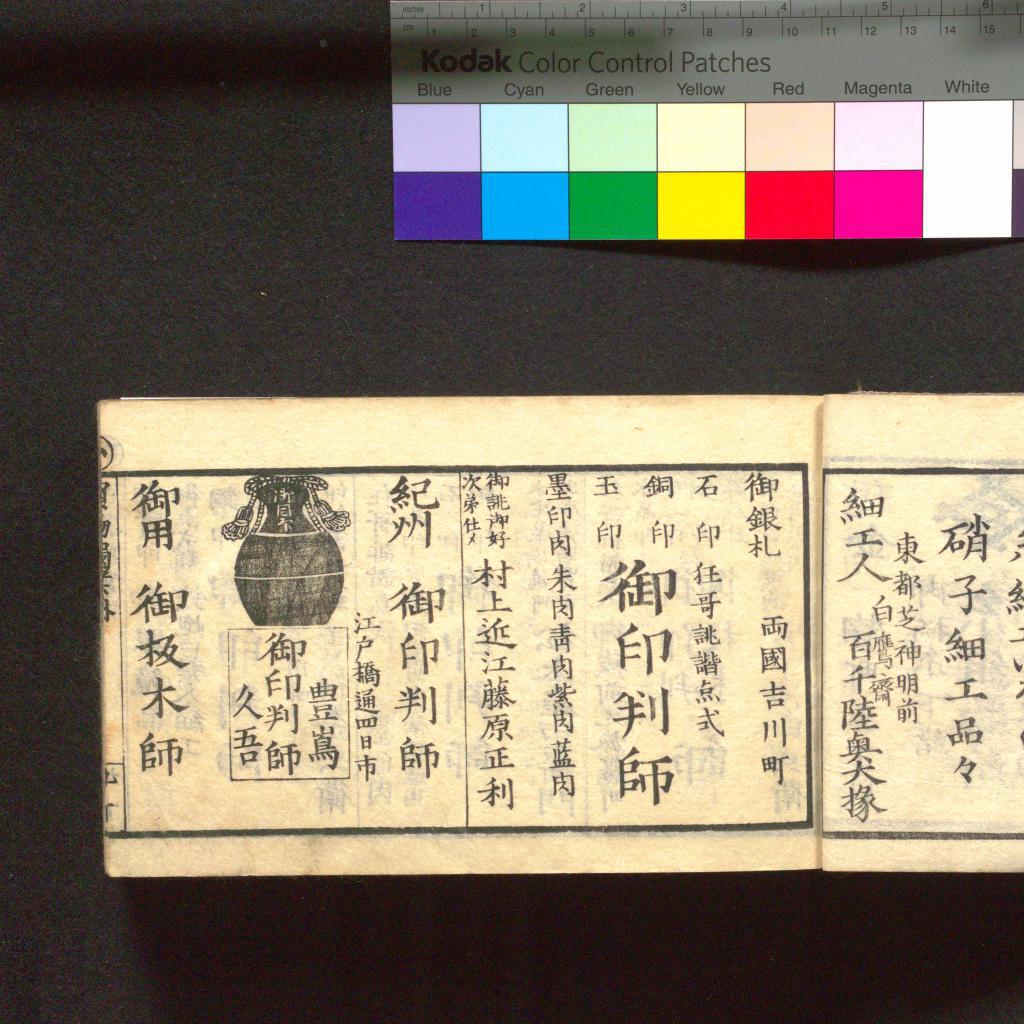 inches 1 2 3 4 5 6
cm 1 2 3 4 5 6 7 8 9 10 11 12 13 14 15
Kodak Color Control Patches
Blue Cyan Green Yellow Red Magenta White
硝子細工品々
東都芝神明前
白鷹齋
細工人 百千陸奥大掾
御銀札 両國吉川町
石印 狂哥誹諧点式
銅印
玉印
御印判師
墨印肉朱肉青肉紫肉蓝肉
御誂御好
次第仕〆
村上近江藤原正利
紀州 御印判師
江戸橋通四日市
豊嶌
御印判師
久吾
御用 御板木師